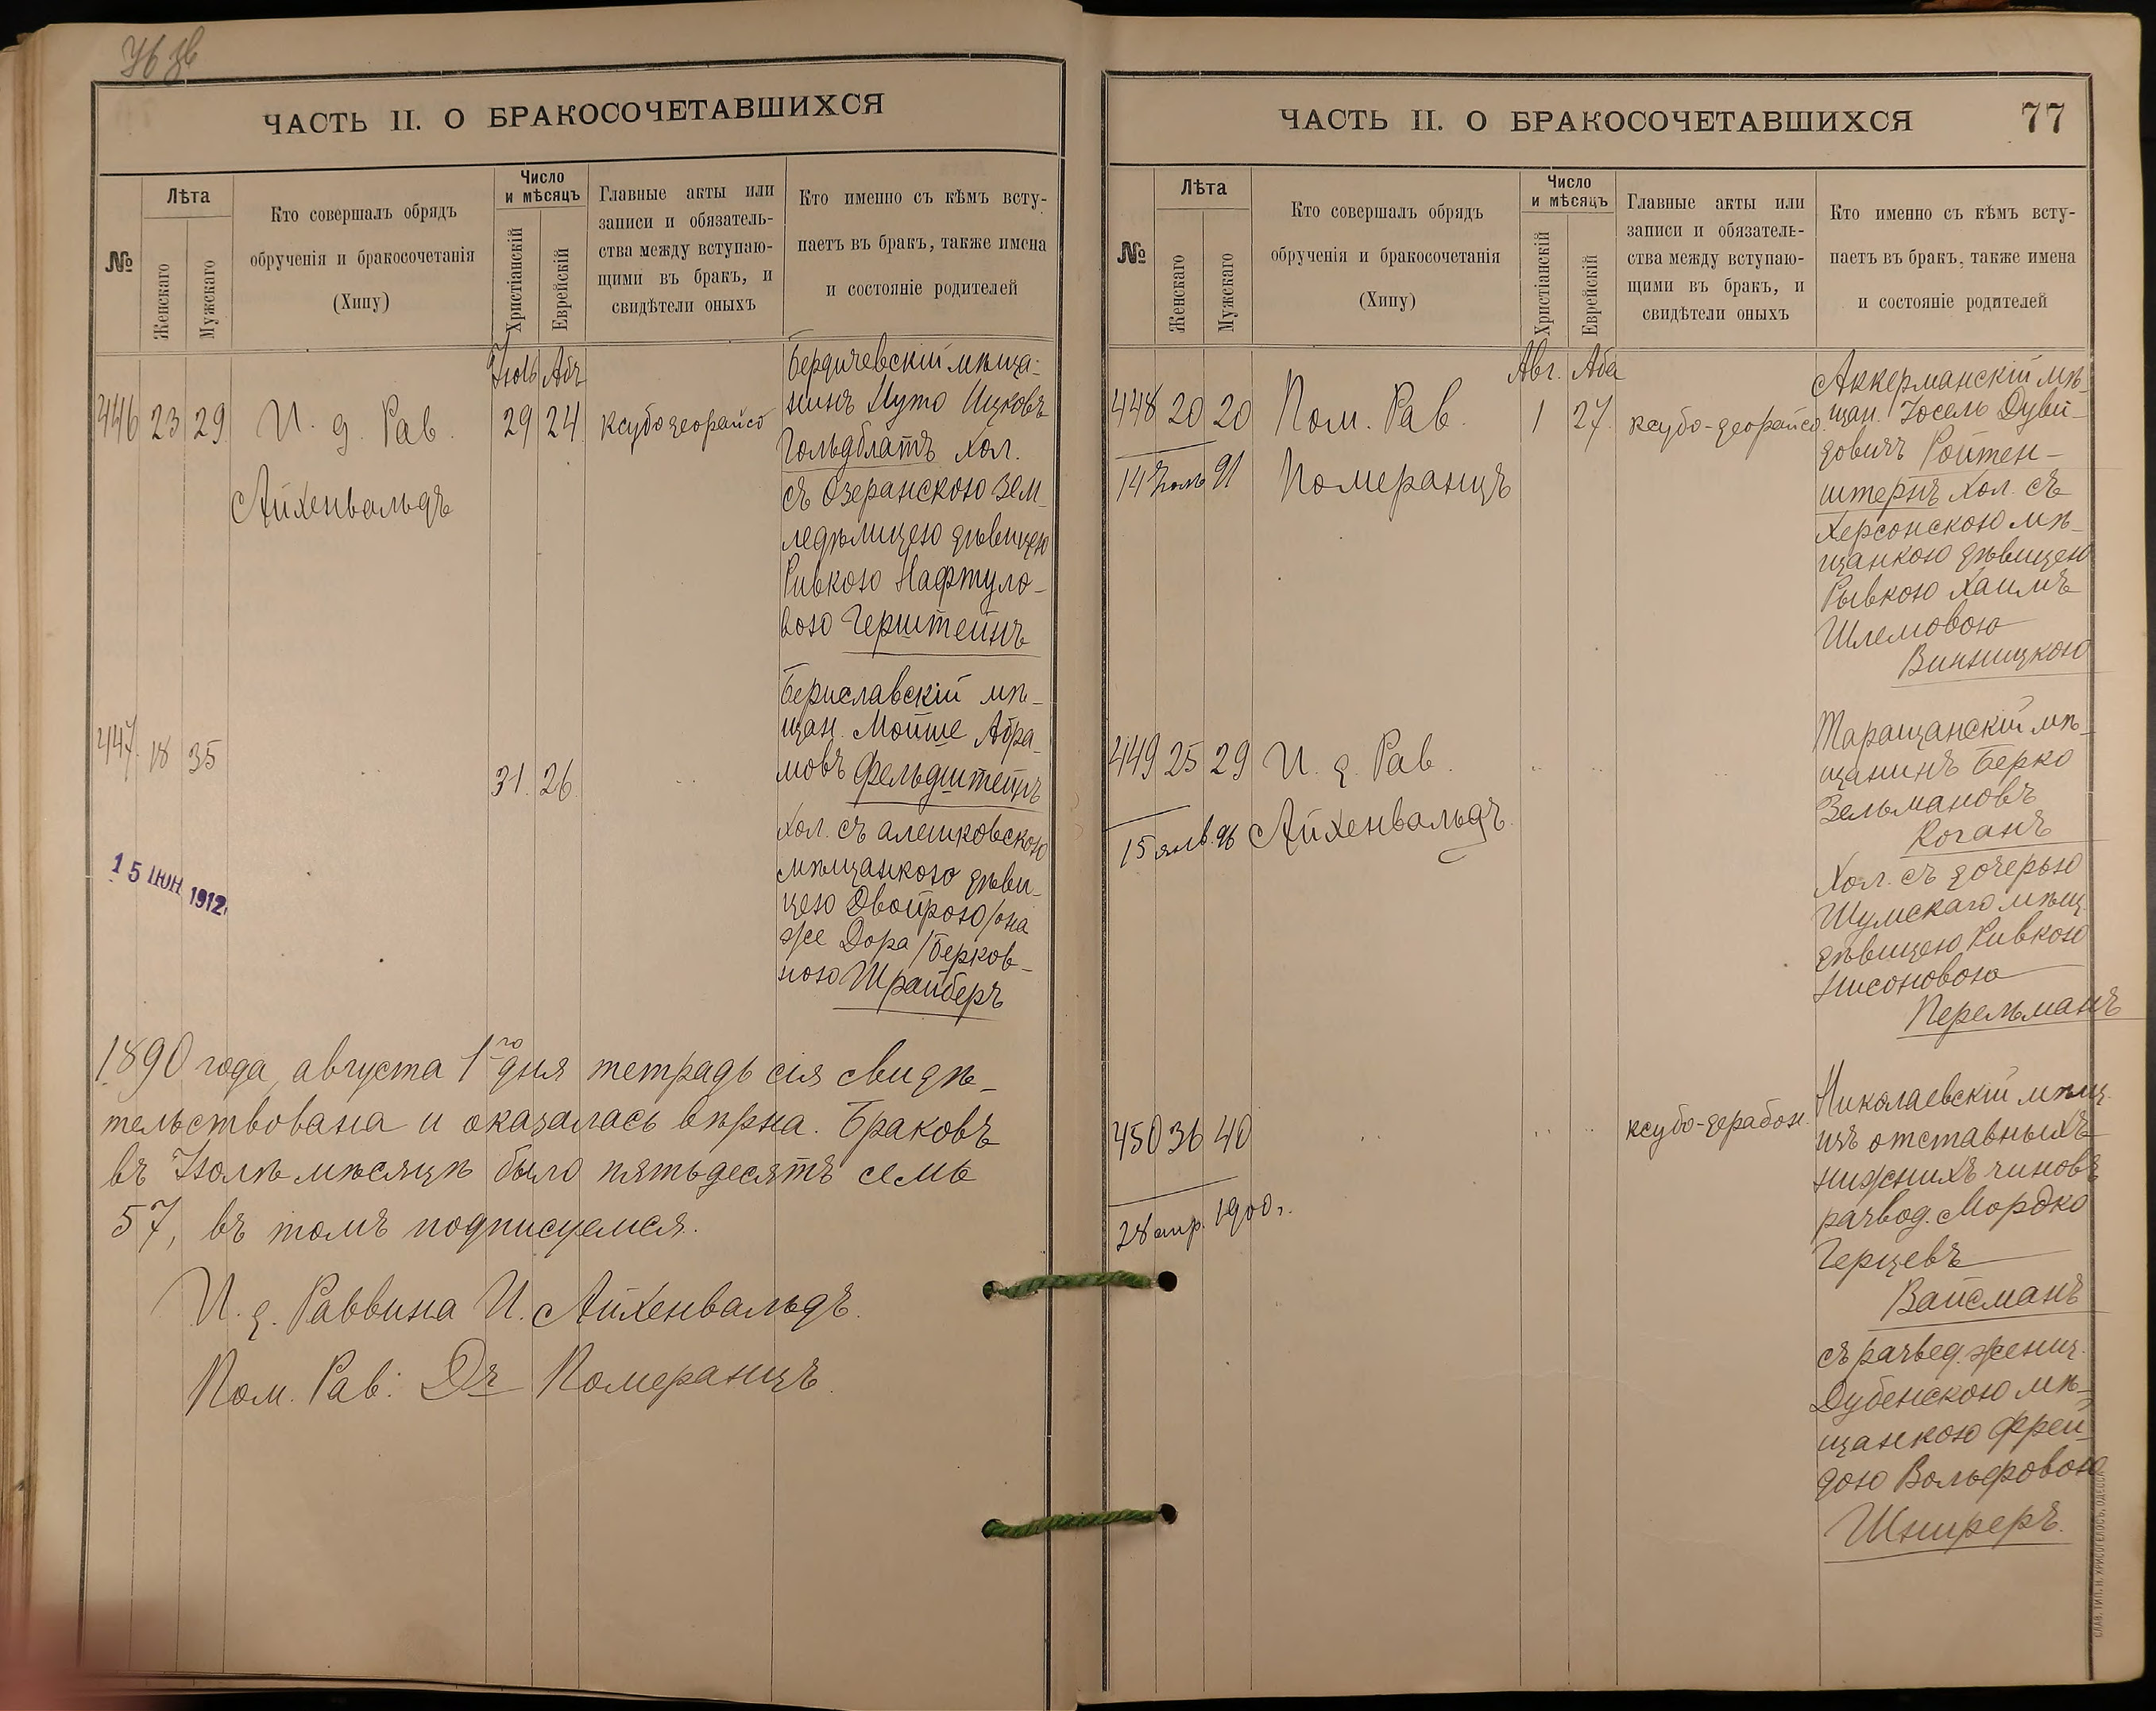 ЧАСТЬ II. О БРАКОСОЧЕТАВШИХСЯ
№
Лѣта
Женскаго
Мужскаго
Кто совершалъ обрядъ
обрученія и бракосочетанія
(Хипу)
Число
и мѣсяцъ
Христіанскій
Еврейскій
Главные акты или
записи и обязатель-
ства между вступаю-
щими въ бракъ, и
свидѣтели оныхъ
Кто именно съ кѣмъ всту-
паетъ въ бракъ, также имена
и состояніе родителей
Іюль Абъ
446 23 29 И. д. Рав. 29 24 ксубо-деорайсо
Айхенвальдъ
Бердичевскій мѣща-
нинъ Нуто Ицковъ
Гольдблатъ хол.
съ Озеранскою зем-
ледѣлицею дѣвицею
Ривкою Нафтуло-
вою Герштейнъ
447. 18 35 31. 26
Бериславскій мѣ-
щан. Мойше Абра-
мовъ Фельдштейнъ
Хол. съ алешковскою
мѣщанкою дѣви-
цею Двойрою/она
же Дора/Берков-
ною Шрайберъ
15 ІЮН 1912
1890 года августа 1го дня тетрадь сія свидѣ-
тельствована и оказалась вѣрна. Браковъ
въ Іюлѣ мѣсяцѣ было пятьдесятъ семь
57, въ томъ подписуемся.
И. д. Раввина И. Айхенвальдъ.
Пом. Рав: Dr Померанцъ.
ЧАСТЬ II. О БРАКОСОЧЕТАВШИХСЯ 77
№
Лѣта
Женскаго
Мужскаго
Кто совершалъ обрядъ
обрученія и бракосочетанія
(Хипу)
Число
и мѣсяцъ
Христіанскій
Еврейскій
Главные акты или
записи и обязатель-
ства между вступаю-
щими въ бракъ, и
свидѣтели оныхъ
Кто именно съ кѣмъ всту-
паетъ въ бракъ, также имена
и состояніе родителей
Авг. Аба
448 20 20 Пом. Рав. 1 27. ксубо-деорайсо.
14 Іюль 91 Померанцъ
Аккерманскій мѣ-
щан. Іосель Дуви-
довичъ Ройтен-
штернъ хол. съ
Херсонскою мѣ-
щанкою дѣвицею
Рывкою Хаимъ
Шлемовою
Винницкою
449 25 29 И. д. Рав.
15 янв. 96 Айхенвальдъ.
Таращанскій мѣ-
щанинъ Берко
Зельмановъ
Коганъ
Хол. съ дочерью
Шумскаго мѣщ.
дѣвицею Ривкою
Нисоновою
Перельманъ
450 36 40 ксубо-дерабон.
28 апр. 1900 г.
Николаевскій мѣщ.
изъ отставныхъ
нижнихъ чиновъ
развод. Мордко
Герцевъ
Вайсманъ
съ развед. женщ.
Дубенскою мѣ-
щанкою Фрей-
дою Вольфовою
Шниреръ.